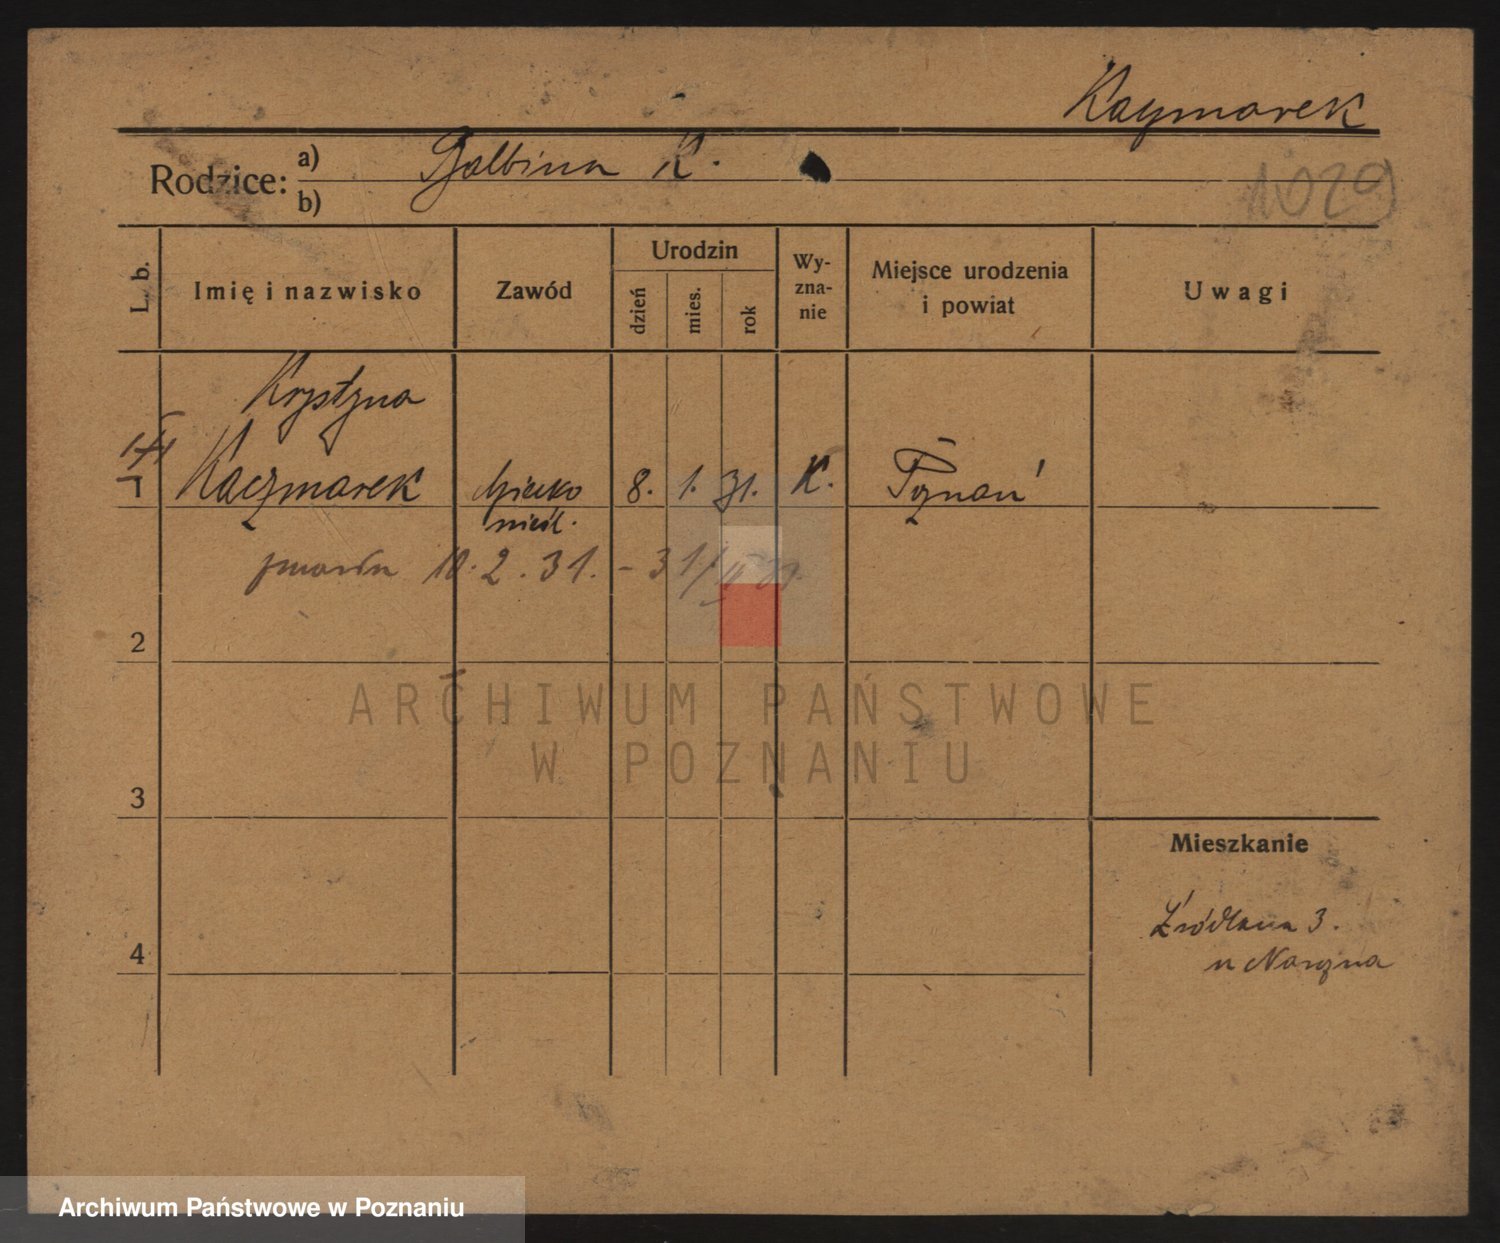 Kaczmarek
Rodzice: a) Balbina K.
b)
1029
L. b.
Imię i nazwisko
Zawód
Urodzin
dzień
mies.
rok
Wy-
zna-
nie
Miejsce urodzenia
i powiat
Uwagi
Krystyna
1 Kaczmarek dziecko 8. 1. 31. K. Poznań
nieśl.
zmarła 10.2.31. - 31/
2
ARCHIWUM PAŃSTWOWE
W POZNANIU
3
Mieszkanie
Źródlana 3.
4
Archiwum Państwowe w Poznaniu